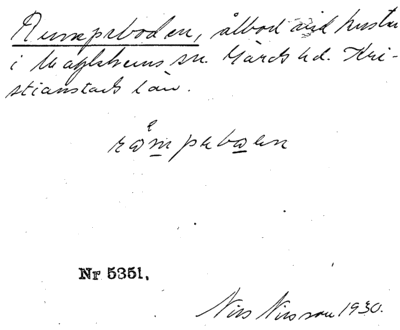 Rumpeboden, ålbod vid kusten
i Maglehems sn. Gärds hd. Kri-
stianstads län.
råmpeboen
Nr 5351.
Nils Nilsson 1930.